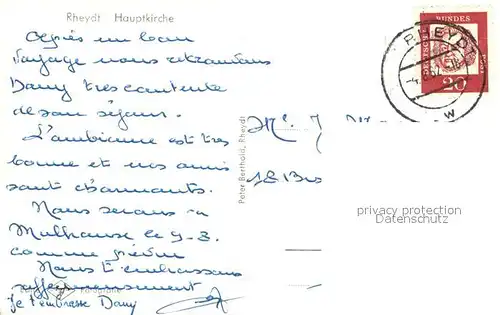 Rheydt Hauptkirche
Après un bon
voyage nous retrouvons
Dany tres contente
de son séjour.
L'ambiance est tres
bonne et nos amis
sont charmants.
Nous serons à
Mulhouse le 9-3.
comme prévu
Nous t'embrassons
affectueusement
je t'embrasse Dany
Peter Berthold, Rheydt
Mr. J
18 B
RHEYDT
DEUTSCHE
BUNDES
POST
20
w
privacy protection
Datenschutz